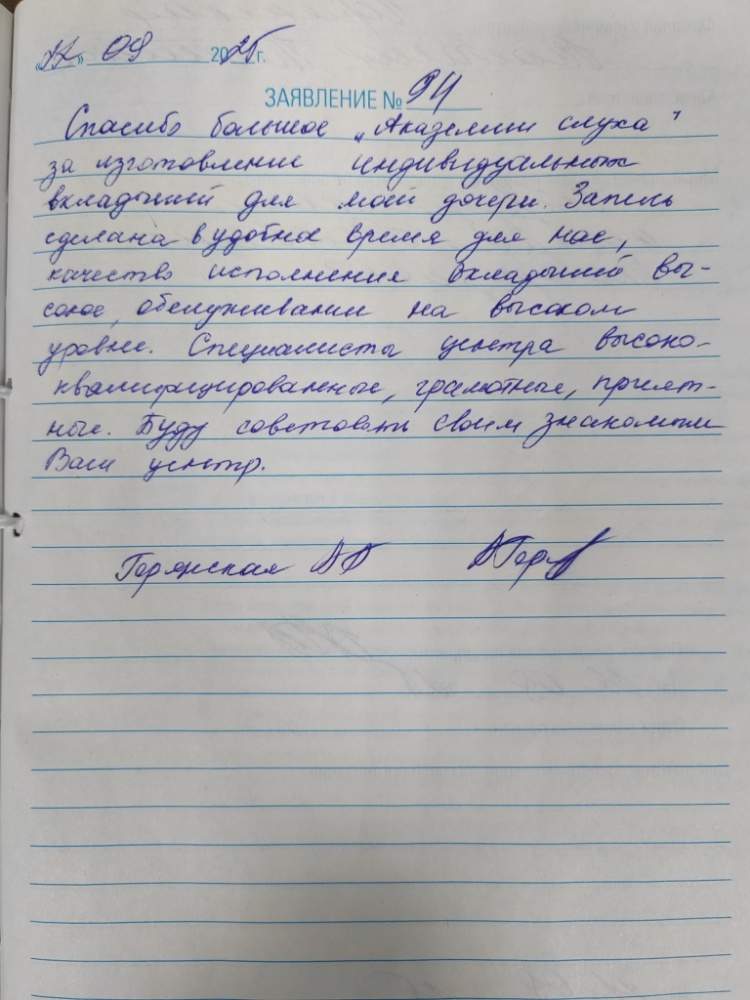 09 2025 г.
ЗАЯВЛЕНИЕ № 94
Спасибо большое „Академии слуха"
за изготовление индивидуальных
вкладышей для моей дочери. Запись
сделана в удобное время для нас,
качество исполнения вкладышей вы-
сокое, обслуживании на высоком
уровне. Специалисты центра высоко-
квалифицированные, грамотные, прият-
ные. Буду советовать своим знакомым
Ваш центр.
Горянская